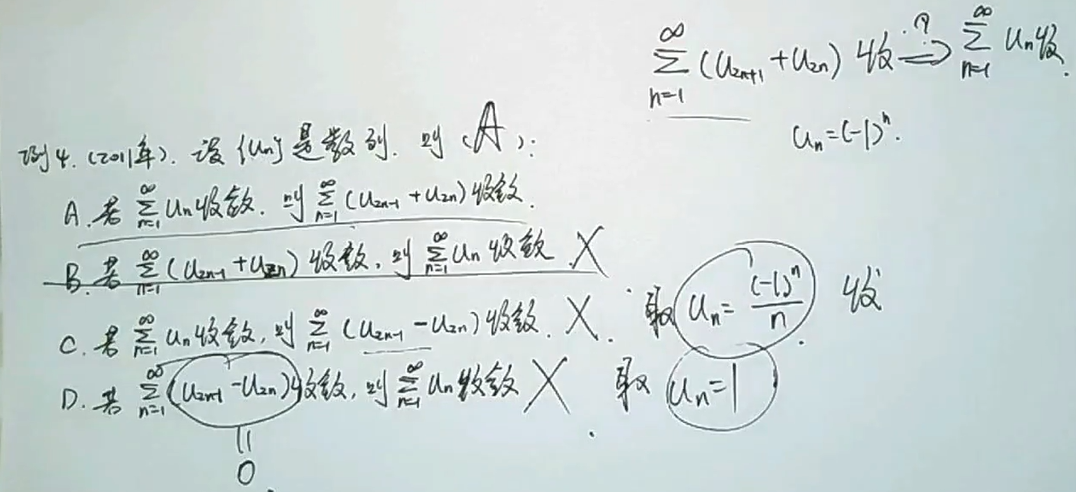 ∞ ∑ n=1 (u₂ₙ₊₁ + u₂ₙ) 收 ?⇒ ∞ ∑ n=1 uₙ收.
uₙ=(-1)ⁿ.
例4.(2011年). 设{uₙ}是数列. 则(A):
A. 若 ∞ ∑ n=1 uₙ收敛. 则 ∞ ∑ n=1 (u₂ₙ₋₁ + u₂ₙ)收敛.
B. 若 ∞ ∑ n=1 (u₂ₙ₋₁ + u₂ₙ)收敛, 则 ∞ ∑ n=1 uₙ收敛 ×
C. 若 ∞ ∑ n=1 uₙ收敛, 则 ∞ ∑ n=1 (u₂ₙ₋₁ - u₂ₙ)收敛. ×. 取 uₙ= (-1)ⁿ/n . 收
D. 若 ∞ ∑ n=1 (u₂ₙ₋₁ - u₂ₙ)收敛, 则 ∞ ∑ n=1 uₙ收敛 × 取 uₙ=1
||
0